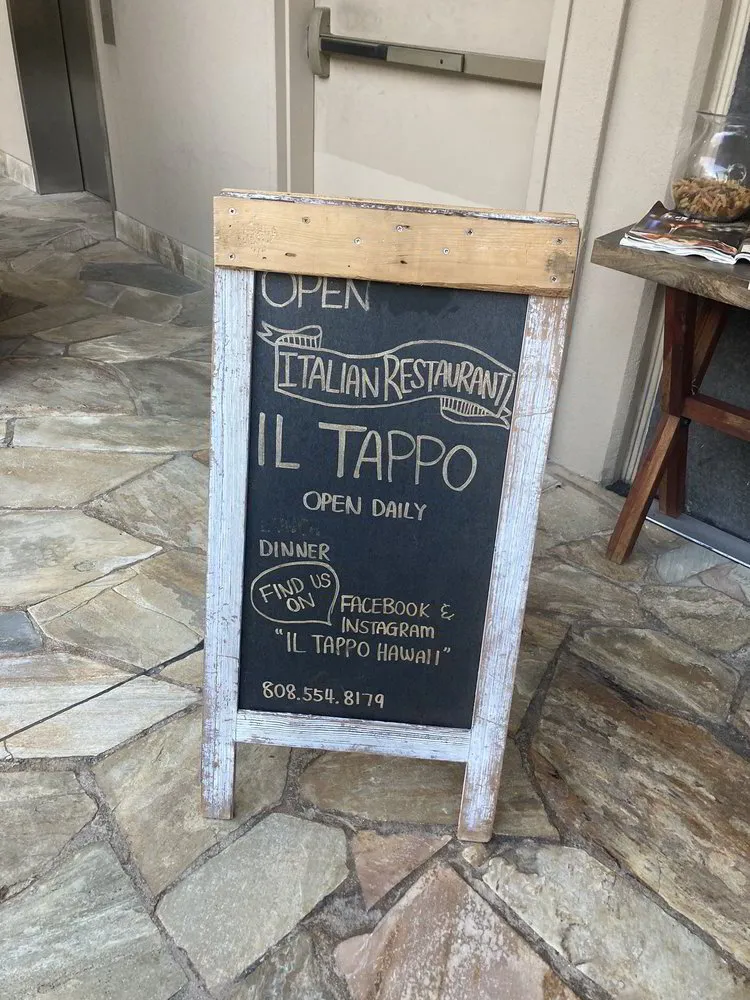 OPEN
ITALIAN RESTAURANT
IL TAPPO
OPEN DAILY
DINNER
FIND US
ON
FACEBOOK &
INSTAGRAM
"IL TAPPO HAWAII"
808.554.8179